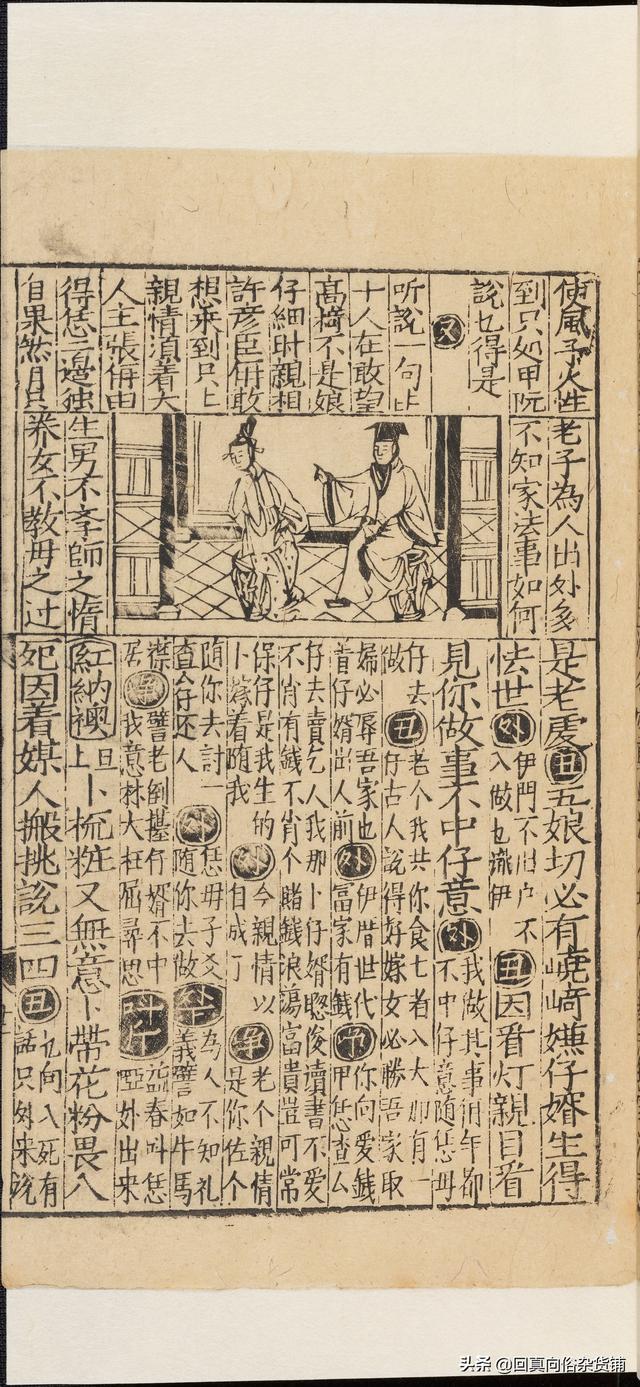 使風子火性
到只处甲阮
說乜得是
又
听說一句止
十人在敢望
高椅不是娘
仔細时親相
許彦臣侢敢
想來到只上
親情須着大
人主張侢由
得恁二邉独
自果煞月
老子為人出外多
不知家法事如何
生男不孝師之惰
养女不教母之过
是老處丑五娘切必有嶢崎嫌仔婿生得
怯世外伊門不旧户不入做乜識伊丑因看灯親目看
見你做事不中仔意外我做其事旧年都不中仔意随恁毋
仔去丑老个我共你食七者入大卵有一
做仔古人說得好嫁女必勝吾家取
婦必辱吾家也伊厝世代你向爱錢
昔仔婿出人前外富家有錢甲恁查厶
仔去賣乞人我那卜仔婿聡俊讀書不爱
不肖有錢不肖个賭錢浪蕩富貴豈可常
保仔是我生的外今親情以净老个親情
卜嫁着随我自成了是你佐个
随你去討一恁毋子爻为人不知礼
还人外随你去做外義譬如牛馬
襟净譬老倒仔婿不中益春叫恁
居我意林大枉屈尋思啞外出来
紅納襖旦上卜梳粧又無意卜带花粉畏入
犯因着媒人搬挑說三四丑乜向入死有話只外来說
头条 @回真向俗杂货铺